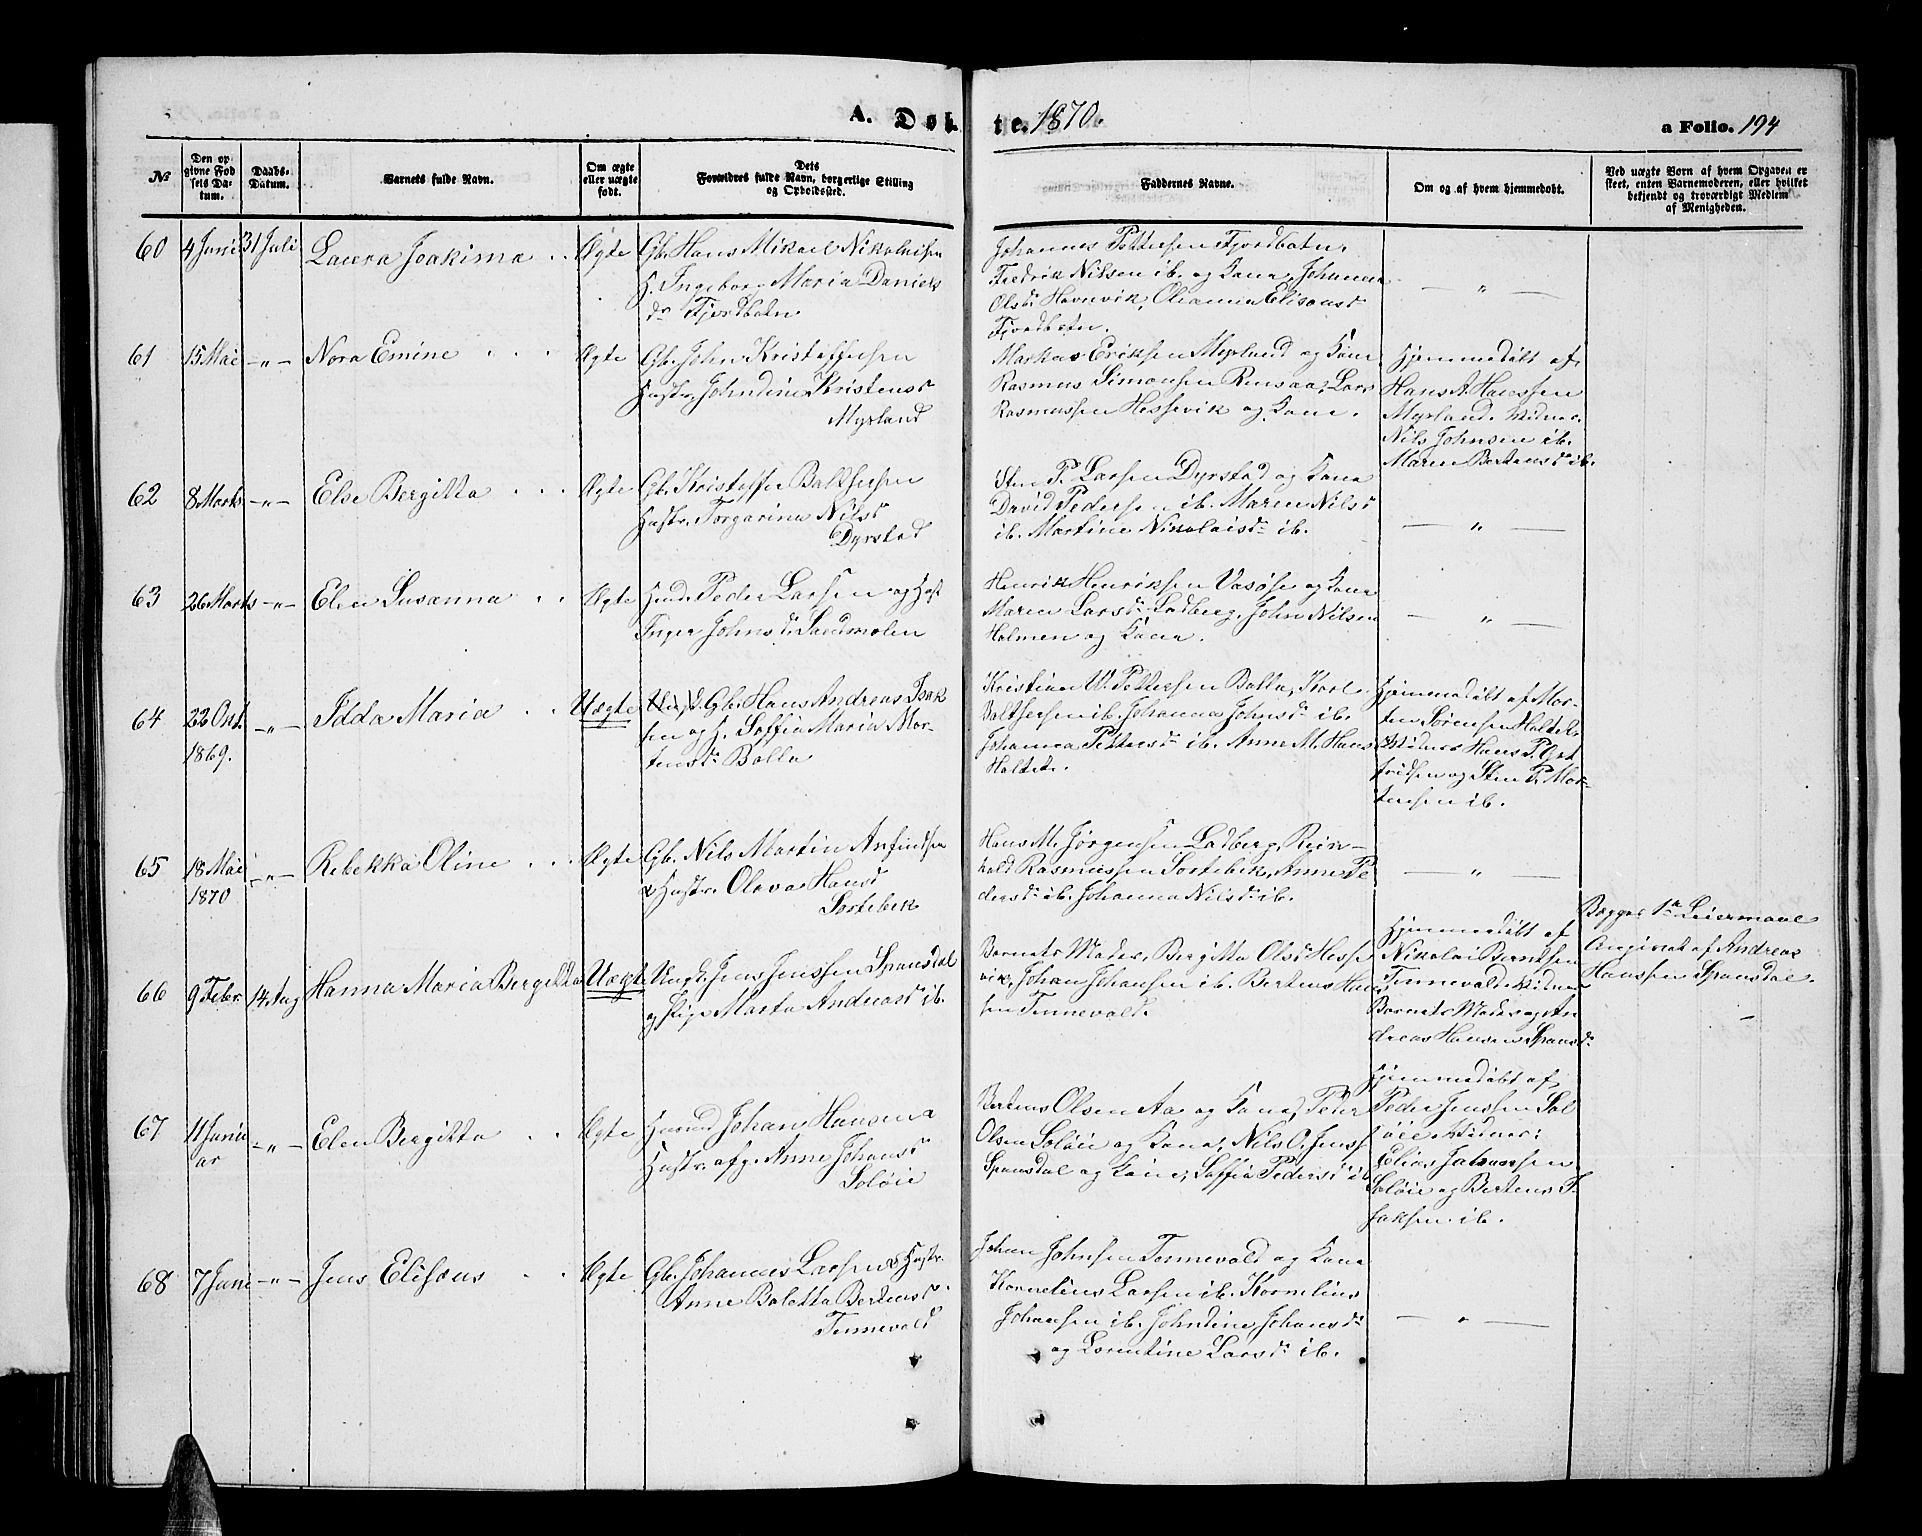 A. Døb
te. 1870.
a Folio. 194
No
Den op
givne Fød
sels Da-
tum.
Daabs-
Datum.
Barnets fulde Navn.
Om ægte
eller uægte
født.
Dets
Forældres fulde Navn, borgerlige Stilling
og Opholdssted.
Faddernes Navne.
Om og af hvem hjemmedøbt.
Ved uægte Børn af hvem Opgaven er
skeet, enten Barnemoderen, eller hvilket
bekjendt og troværdigt Medlem
af Menigheden.
60 4 Juni 31 Juli Laura Joakima Ægte
Gb. Hans Mikael Nikolaisen
H. Ingeborg Maria Daniels
dr Fjordbotn
Johannes Pettersen Fjordbotn,
Fredrik Nilsen ib. og Kona, Johanna
Olsdr Havnvik, Oleanna Elisæusd
Fjordbotn.
— " —
61 15 Mai — " — Nora Emine Ægte
Gb. John Kristoffersen
Hustr. Johndine Kristensd
Myrland
Markus Eriksen Myrland og Kone
Rasmus Simonsen Rensaa, Lars
Rasmussen Hessevik og Kone.
Hjemmedøbt af
Hans A Hanssen
Myrland. Vidner.
Nils Johnsen ib.
Maren Bertensd ib.
62 8 Marts — " — Else Bergitta Ægte
Gb. Kristoffer Baltsersen
Hustr. Torgarina Nilsd
Dyrstad
Sten P. Larsen Dyrstad og Kona
David Pedersen ib. Maren Nilsd
ib. Martine Nikolaisdr ib.
— " —
63 26 Marts — " — Elen Susanna Ægte
Huusmd. Peder Larsen og Hust
Inger Johnsdr. Sandmolen
Henrik Henriksen Vasøse og Kone
Maren Larsdr Ladberg, John Nilsen
Holmen og Kone.
— " —
64 22 Okt. 1869. — " — Idda Maria Uægte
Gb. Hans Andreas Isak
sen og H. Soffia Maria Mor-
tensdr Bolla
Kristian W. Pettersen Bolla, Karl
Baltsersen ib. Johanna Johnsdr ib.
Johanna Pettersdr ib. Anne M. Hans
Holtet.
Hjemmedøbt af Mor-
ten Sørensen Holtet.
Vidner Hans P. Got
fridsen og Sten P. Mor-
tensen ib.
65 18 Mai 1870 — " — Rebekka Oline Ægte
Gb. Nils Martin Anfindsen
& Hustr. Olava Hansd
Sørtebek
Hans M. Jørgensen Ladberg, Rein-
hold Rasmussen Sørtebek, Anne Pe
dersdr ib. Johanna Nilsdr ib.
— " —
66 9 Febr 14 Aug Hanna Maria Bergitta Uægte
Ungk. Jens Jenssen Spansdal
og Pige Marta Andreasd ib.
Barnets Moder, Bergitta Olsd Hesse
vik, Johan Johansen ib. Bertens Han
sen Tennevold.
Hjemmedøbt af
Nikolai Berntsen
Tennevold. Vidner
Barnets Moder og An
dreas Hansen Spansd.
Begges 1te Leiermaal
Angivet af Andreas
Hanssen Spansdal.
67 11 Juni ar — " — Elen Bergitta Ægte
Huusmd Johan Hansen &
Hustr. afg. Anne Johansd
Soløie
Bertens Olsen Aa og Kona, Peter
Olsen Soløie og Kona, Nils O. Jenss
Spansdal og Kone, Soffia Pedersd ib
Hjemmedøbt af
Peder Jenssen Sol
øie Vidner:
Elias Johansen
Soløie og Bertens I
saksen ib.
68 7 Juni — " — Jens Elisæus Ægte
Gb. Johannes Larsen & Hustr.
Anne Boletta Bertensd.
Tennevold
Johan Johnsen Tennevold og Kona
Kornelius Larsen ib. Kornelius
Johansen ib. Johndine Johansdr
og Lorentine Larsdr ib.
— " —